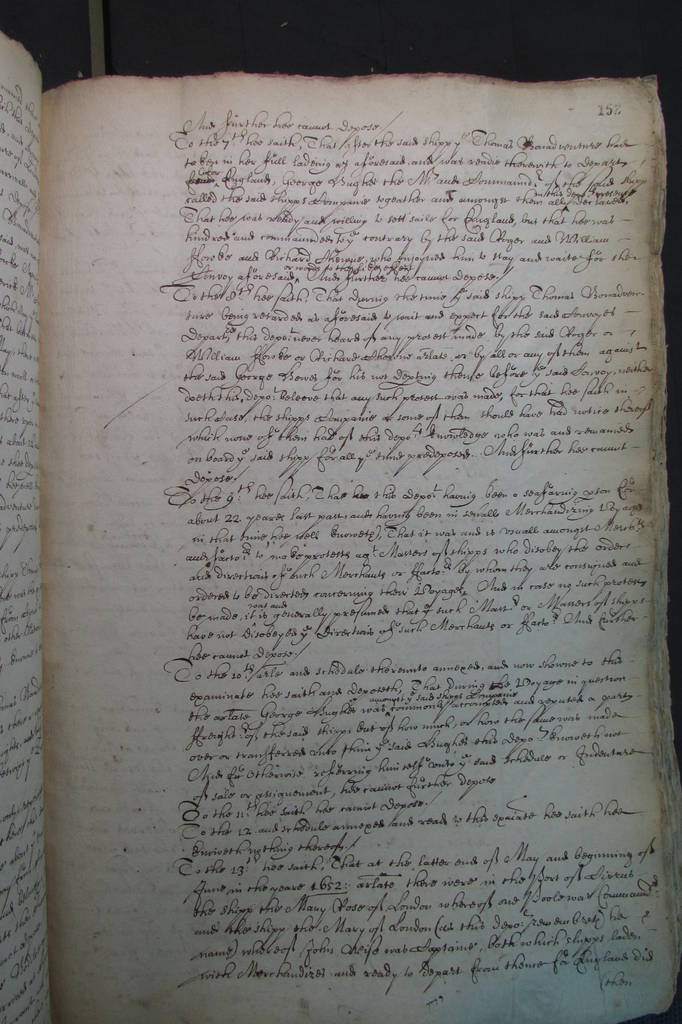 152
And further hee cannot depose /
To the 7th hee saith, That after the said shipp ye Thomas Bonadventure had
taken in her full ladeing as aforesaid and was readie therewith to depart
for England, George Hughes the Mr and Commander of the said shipp
called the said shipps Companie together and amongst them all declared
in this depts presence
That hee was ready and willing to sett saile for England, but that hee was
hindred and commanded to ye contrary by the said Roger and William
and Richard who injoyned him to stay and waite for the
Convoy aforesaid, And further hee cannot depose /
To the 8th hee saith, That during the time ye said shipp Thomas Bonadven-
ture being retarded as aforesaid to wait and expect for the said Convoyes
departure this depot never heard of any protest made by the said Roger or
William or Richard arlate, or by all or any of them against
the said George for his not departing thence before ye said Convoy, neither
doeth this depot beleeve that any such protest was made, for that hee saith in
such case, the shipps Companie or some of them should have had notice thereof
which none of them had of this depots knowledge who was and remained
on board ye said shipp for all ye time predeposed. And further hee cannot
depose /
To the 9th hee saith, That hee this depot having been a seafaring pson for
about 22 yeares last past, and having been in severall Merchandizing Voyages
in that time hee well knoweth, That it was and is usuall amongst Merchts
and factors to make protests agt Masters of shipps who disobey the orders
and directions of such Merchants or factors by whom they are consigned and
ordered to be directed concerning their Voyages, And in case no such protests
be made, it is generally presumed that ye such Mastr or Masters of shipps
was and
have not disobeyed ye directions of such Merchants or factors And further
hee cannot depose /
To the 10th arle and schedule thereunto annexed, and now showne to this
examinate hee saith and deposeth, That during the Voyage in question
amongst ye said shipps Companie
the arlate George Hughes was commonly accounted and reputed a party
freightr of the said shipp but of how much or how the same was made
over or transferred unto him ye said Hughes this depot knoweth not
And for otherwise referring himself unto ye said schedule or Indenture
of sale or assignement, hee cannot further depose
To the 11th hee saith hee cannot depose /
To the 12 and schedule annexed and read to this exaiate hee saith hee
knoweth nothing thereof /
To the 13th hee saith, That at the latter end of May and beginning of
June in the yeare 1652 arlate there were in the Port of
the shipp the Mary Rose of London whereof one Poole was Commandr
and the shipp the Mary of London (as this depot remembreth her
name) whereof John was Captaine, both which shipps laden
with Merchandizes and ready to depart from thence for England did
then